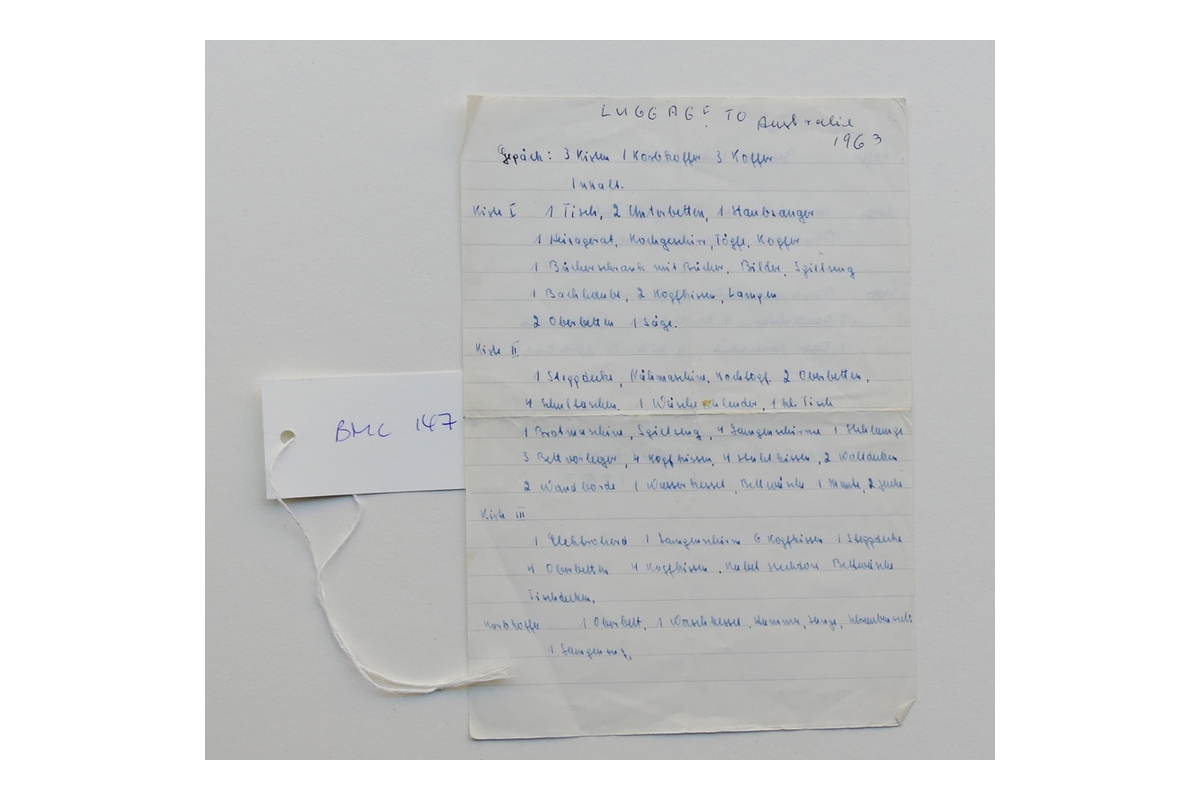 LUGGAGE TO Australie
1963
Gepäck: 3 Kisten 1 Korbkoffer 3 Koffer
Inhalt.
Kiste I 1 Tisch, 2 Unterbetten, 1 Staubsauger
1 Heizgerät, Kochgeschirr, Töpfe, Koffer
1 Bücherschrank mit Bücher, Bilder, Spielzeug
1 Backhaube, 2 Kopfkissen, Lampen
2 Oberbetten 1 Säge.
Kiste II
1 Steppdecke, Nähmaschine, Kochtopf. 2 Oberbetten,
4 Schultaschen. 1 Wäscheschleuder, 1 kl. Tisch
1 Brotmaschine, Spielzeug, 4 Lampenschirme 1 Stehlampe
3 Bettvorleger, 4 Kopfkissen, 4 Stuhlkissen, 2 Wolldecken
2 Wandborde 1 Wasserkessel, Bettwäsche 1 2
Kiste III
1 Elektroherd 1 Lampenschirm 6 Kopfkissen 1 Steppdecke
4 Oberbetten 4 Kopfkissen, Kabel Steckdose Bettwäsche
Tischdecken,
Korbkoffer 1 Oberbett, 1 Waschkessel, Hammer, Zange,
1
BMC 147